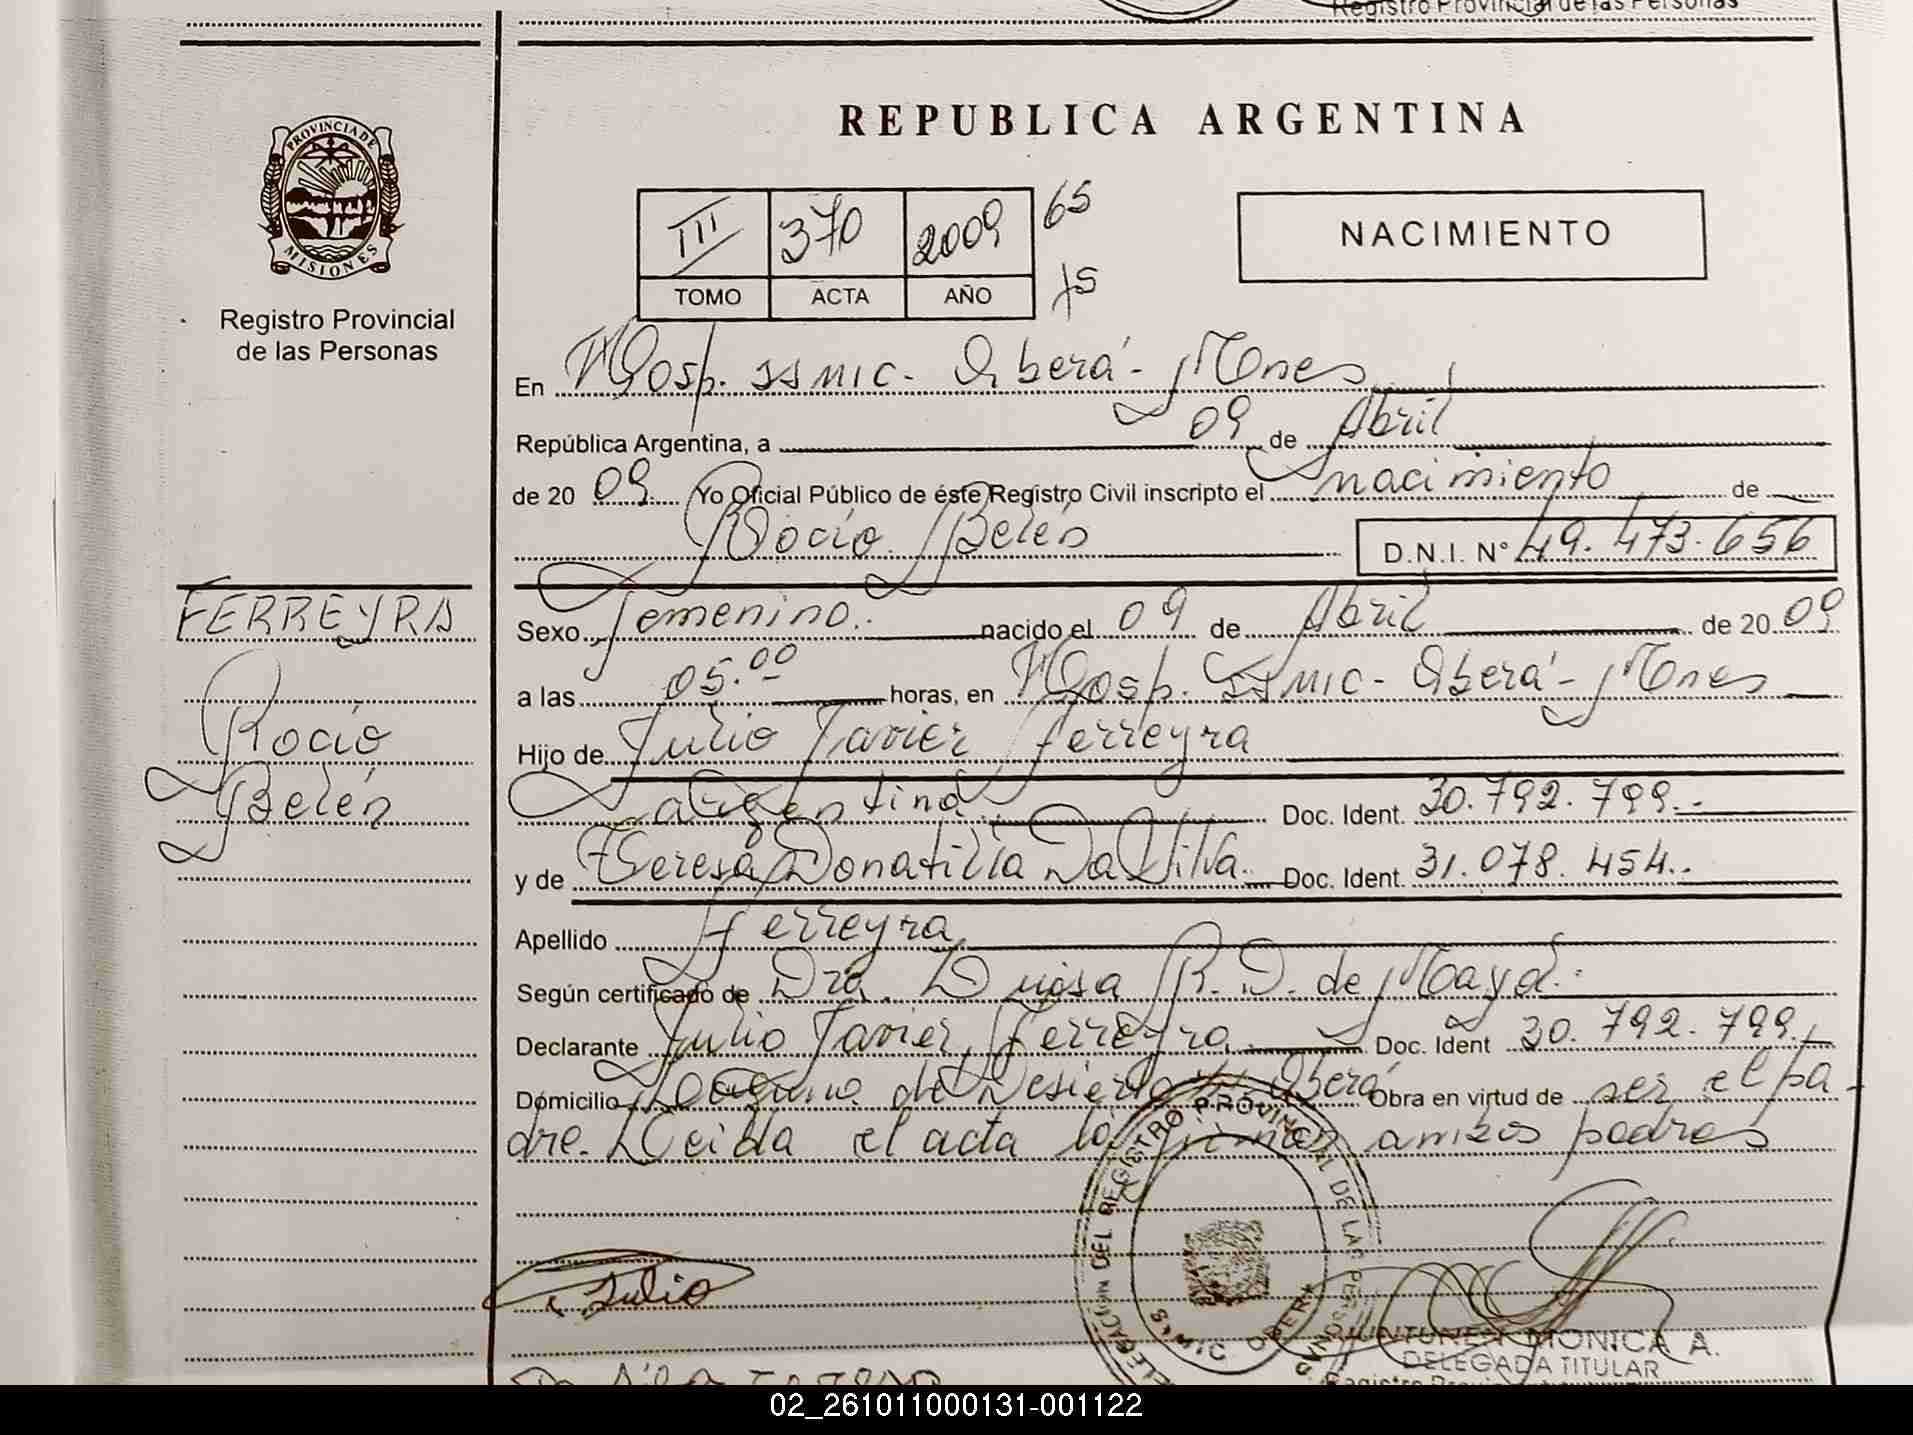 Registro Provincial de las Personas
REPUBLICA ARGENTINA
PROVINCIA DE
MISIONES
Registro Provincial
de las Personas
III 370 2009 65
TOMO ACTA AÑO 75
NACIMIENTO
En Hosp. SSMIC - Oberá - Mnes
República Argentina, a 09 de Abril
de 20 09 Yo Oficial Público de éste Registro Civil inscripto el nacimiento de
Rocío Belén D.N.I. N° 49.473.656
FERREYRA
Rocío
Belén
Sexo Femenino.. nacido el 09 de Abril de 20 09
a las 05.00 horas, en Hosp. SSMIC - Oberá - Mnes
Hijo de Julio Javier Ferreyra
argentina Doc. Ident. 30.792.799..
y de Teresa Donatilia Da Silva. Doc. Ident. 31.078.454..
Apellido Ferreyra
Según certificado de Dra. Luisa R. D. de
Declarante Julio Javier Ferreyra Doc. Ident 30.792.799.
Domicilio de Desierto Oberá Obra en virtud de ser el pa-
dre. Leida el acta la firman ambos padres
DELEGACION DEL REGISTRO PROVINCIAL DE LAS PERSONAS
SSMIC OBERA
Julio
JUNTUNEN MONICA A.
DELEGADA TITULAR
02_261011000131-001122